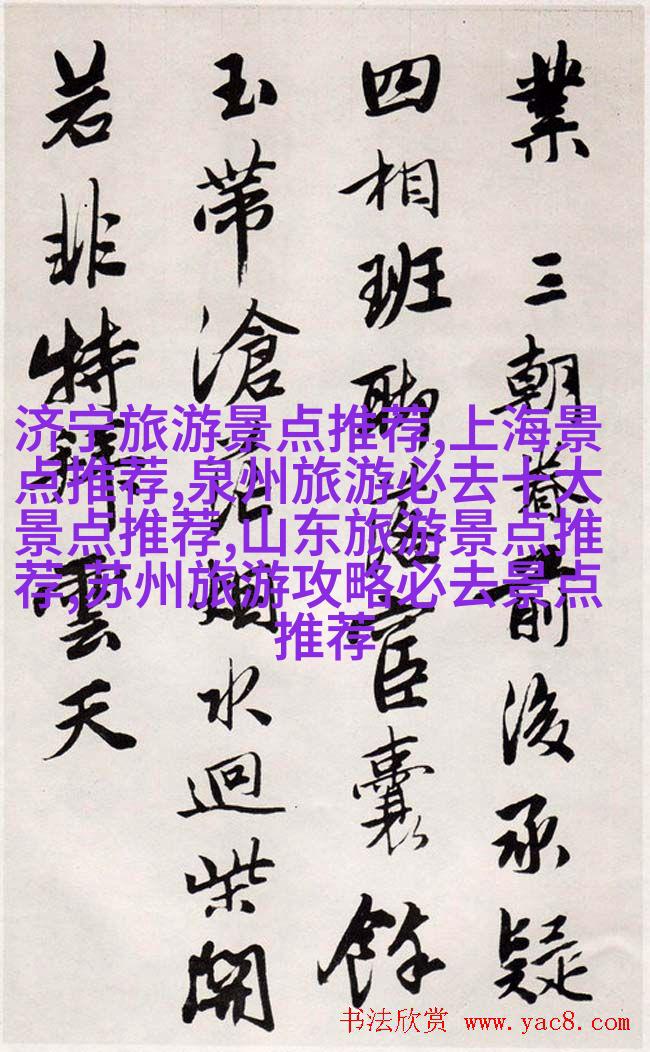 業 三朝眷前後承疑
四相班聯 囊餘
玉帶滄 烟水迴柴開
若非特 雲天
济宁旅游景点推荐,上海景
点推荐,泉州旅游必去十大
景点推荐,山东旅游景点推
荐,苏州旅游攻略必去景点
推荐
书法欣赏 www.yac8.com